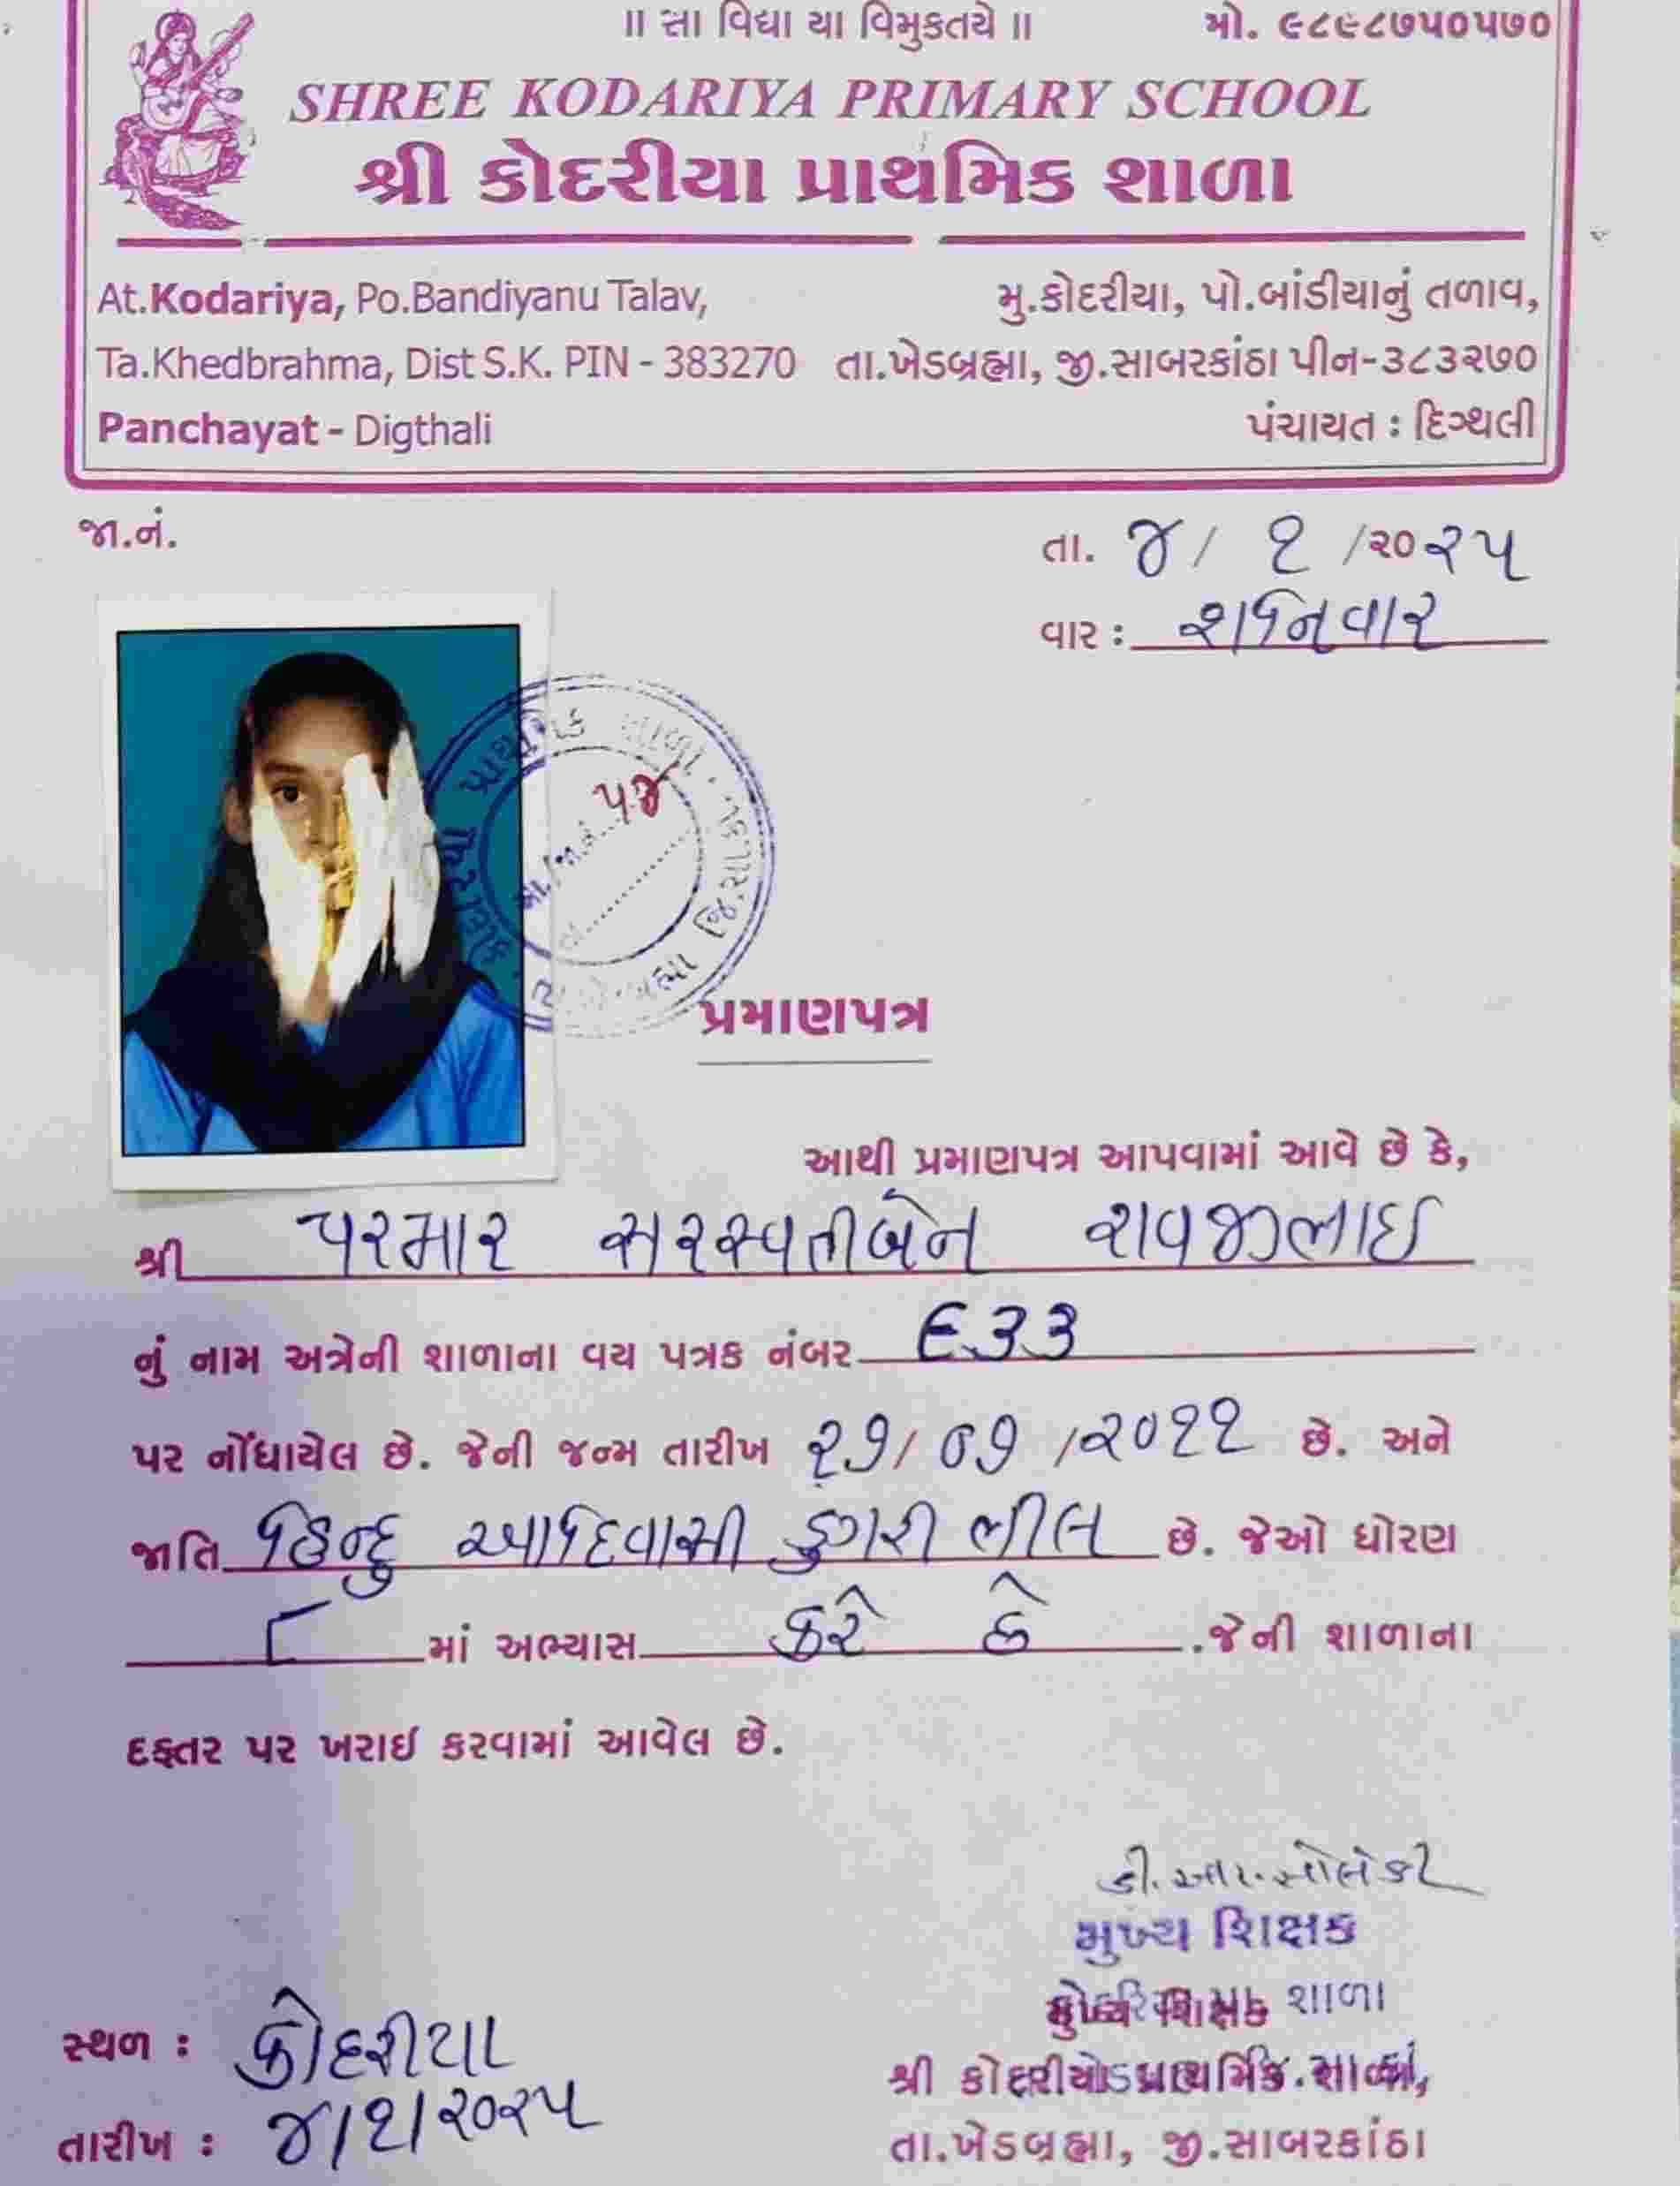 ॥ સા વિદ્યા યા વિમુકતયે ॥ મો. ૯૮૯૮૭૫૦૫૭૦
SHREE KODARIYA PRIMARY SCHOOL
શ્રી કોદરીયા પ્રાથમિક શાળા
At.Kodariya, Po.Bandiyanu Talav, મુ.કોદરીયા, પો.બાંડીયાનું તળાવ,
Ta.Khedbrahma, Dist S.K. PIN - 383270 તા.ખેડબ્રહ્મા, જી.સાબરકાંઠા પીન-૩૮૩૨૭૦
Panchayat - Digthali પંચાયત : દિગ્થલી
જા.નં. તા. ૪/ ૧ /૨૦૨૫
વાર : શનિવાર
પ્રાથમિક શાળા
૫૪
પ્રમાણપત્ર
આથી પ્રમાણપત્ર આપવામાં આવે છે કે,
શ્રી પરમાર સરસ્વતીબેન રાવજીભાઇ
નું નામ અત્રેની શાળાના વય પત્રક નંબર ૬૩૩
પર નોંધાયેલ છે. જેની જન્મ તારીખ ૨૭/ ૦૭ /૨૦૧૧ છે. અને
જાતિ હિન્દુ આદિવાસી ડુગરી ભીલ છે. જેઓ ધોરણ
૮ માં અભ્યાસ કરે છે .જેની શાળાના
દફતર પર ખરાઈ કરવામાં આવેલ છે.
ડી.આર.સોલંકી
મુખ્ય શિક્ષક
શાળા
મુખ્ય શિક્ષક
સ્થળ : કોદરીયા
શ્રી કોદરીયા પ્રાથમિક શાળા,
તારીખ : ૪/૧/૨૦૨૫
તા.ખેડબ્રહ્મા, જી.સાબરકાંઠા